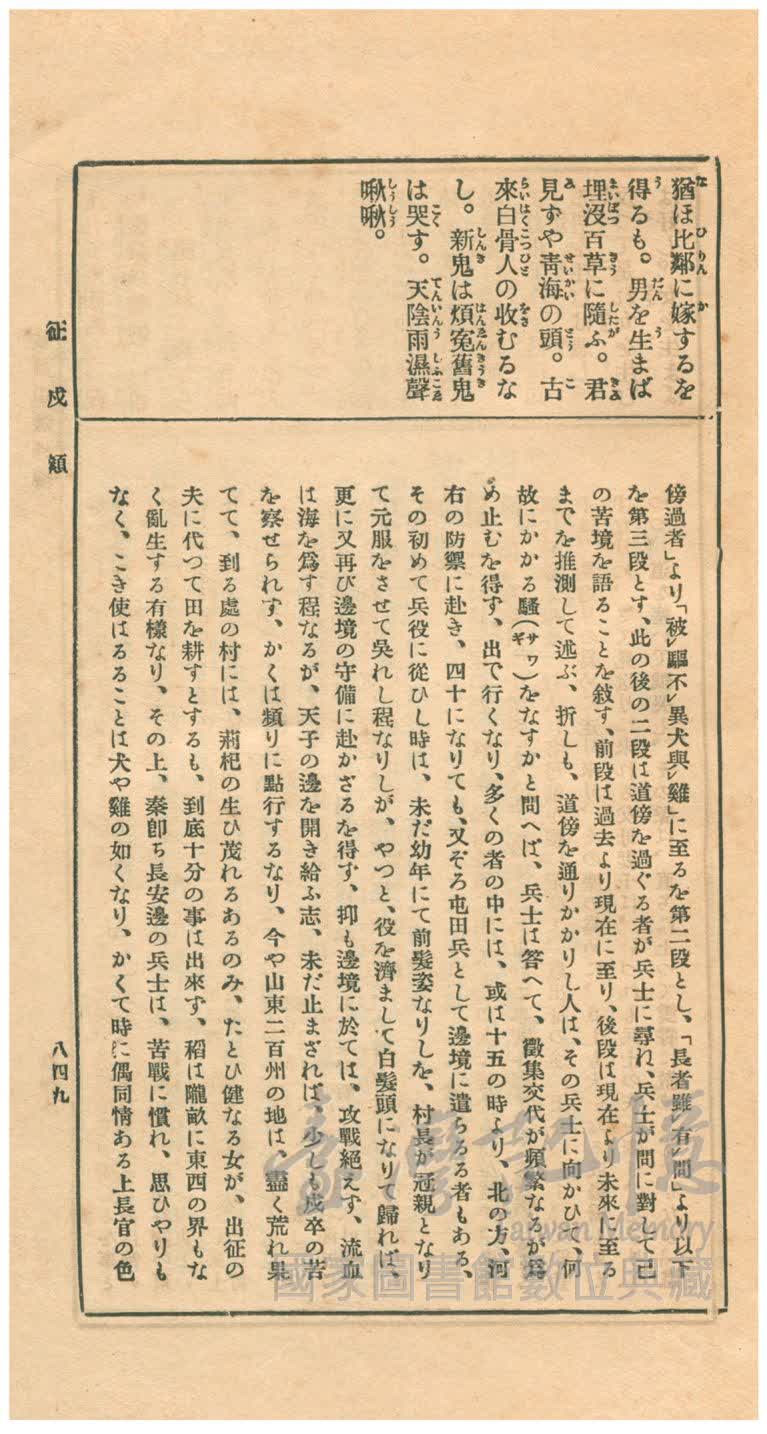 猶ほ比鄰に嫁するを
得るも。男を生まば
埋沒百草に隨ふ。君
見ずや靑海の頭。古
來白骨人の收むるな
し。新鬼は煩冤舊鬼
は哭す。天陰雨濕聲
啾啾。
傍過者」より「被レ驅不レ異犬與レ雞」に至るを第二段とし、「長者雖レ有レ問」より以下
を第三段とす、此の後の二段は道傍を過ぐる者が兵士に尋ね、兵士が問に對して己
の苦境を語ることを敍す、前段は過去より現在に至り、後段は現在より未來に至る
までを推測して述ぶ、折しも、道傍を通りかかりし人は、その兵士に向かひて、何
故にかかる騷(サワギ)をなすかと問へば、兵士は答へて、徵集交代が頻繁なるが爲
め止むを得ず、出で行くなり、多くの者の中には、或は十五の時より、北の方、河
右の防禦に赴き、四十になりても、又ぞろ屯田兵として邊境に遣らるる者もある、
その初めて兵役に從ひし時は、未だ幼年にて前髮姿なりしを、村長が冠親となり
て元服をさせて吳れし程なりしが、やつと、役を濟まして白髮頭になりて歸れば、
更に又再び邊境の守備に赴かざるを得ず、抑も邊境に於ては、攻戰絕えず、流血
は海を爲す程なるが、天子の邊を開き給ふ志、未だ止まざれば、少しも戍卒の苦
を察せられず、かくは頻りに點行するなり、今や山東二百州の地は、盡く荒れ果
てて、到る處の村には、荊杞の生ひ茂れるあるのみ、たとひ健なる女が、出征の
夫に代つて田を耕すとするも、到底十分の事は出來ず、稻は隴畝に東西の界もな
く亂生する有樣なり、その上、秦卽ち長安邊の兵士は、苦戰に慣れ、思ひやりも
なく、こき使はるることは犬や雞の如くなり、かくて時に偶同情ある上長官の色
征戍類
八四九
臺灣記憶
Taiwan Memory
國家圖書館數位典藏